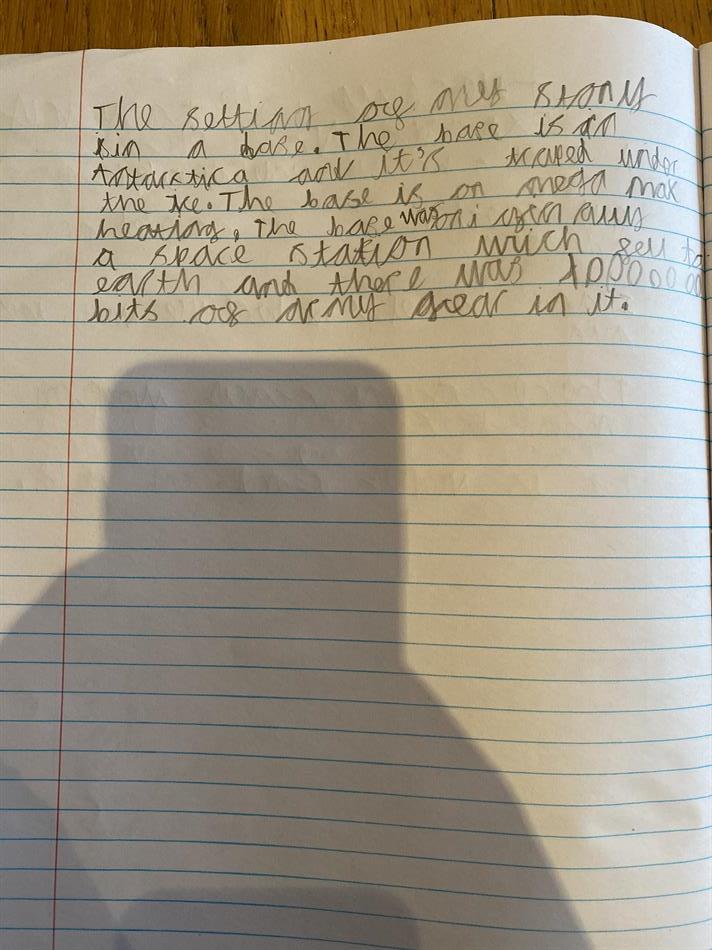 The setting of my story
is in a base. The base is in
Antarctica and it's traped under
the ice. The base is on mega max
heating. The base was
a space station which fell to
earth and there was 10000000
bits of army gear in it.